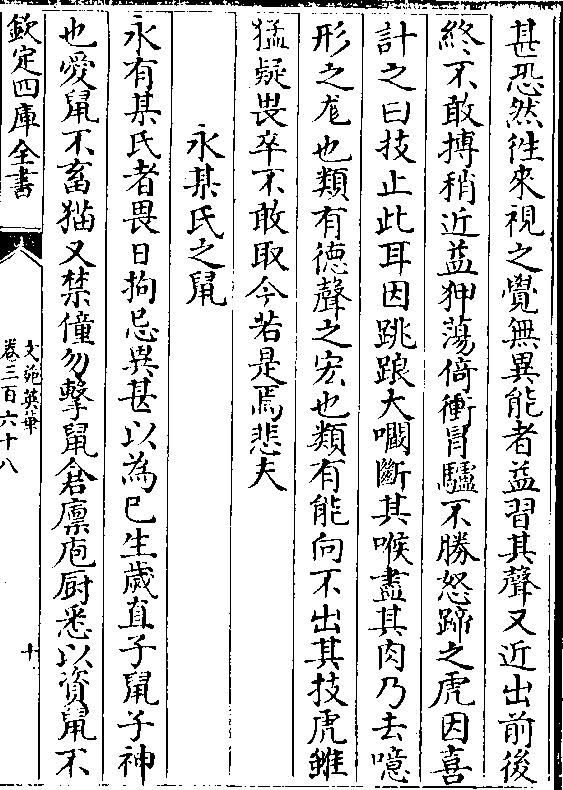 甚恐然徃來視之覺無異能者益習其聲又近出前後
終不敢搏稍近益狎蕩倚衝冒驢不勝怒蹄之虎因喜
計之曰技止此耳因跳踉大㘚斷其喉盡其肉乃去噫
形之尨也類有徳聲之宏也類有能向不出其技虎雖
猛疑畏卒不敢取今若是焉悲夫
永某氏之鼠
永有某氏者畏日拘忌異甚以為己生歲直子鼠子神
也愛鼠不畜猫又禁僮勿擊鼠倉廩庖厨悉以資鼠不
欽定四庫全書
文苑英華
卷三百六十八
十